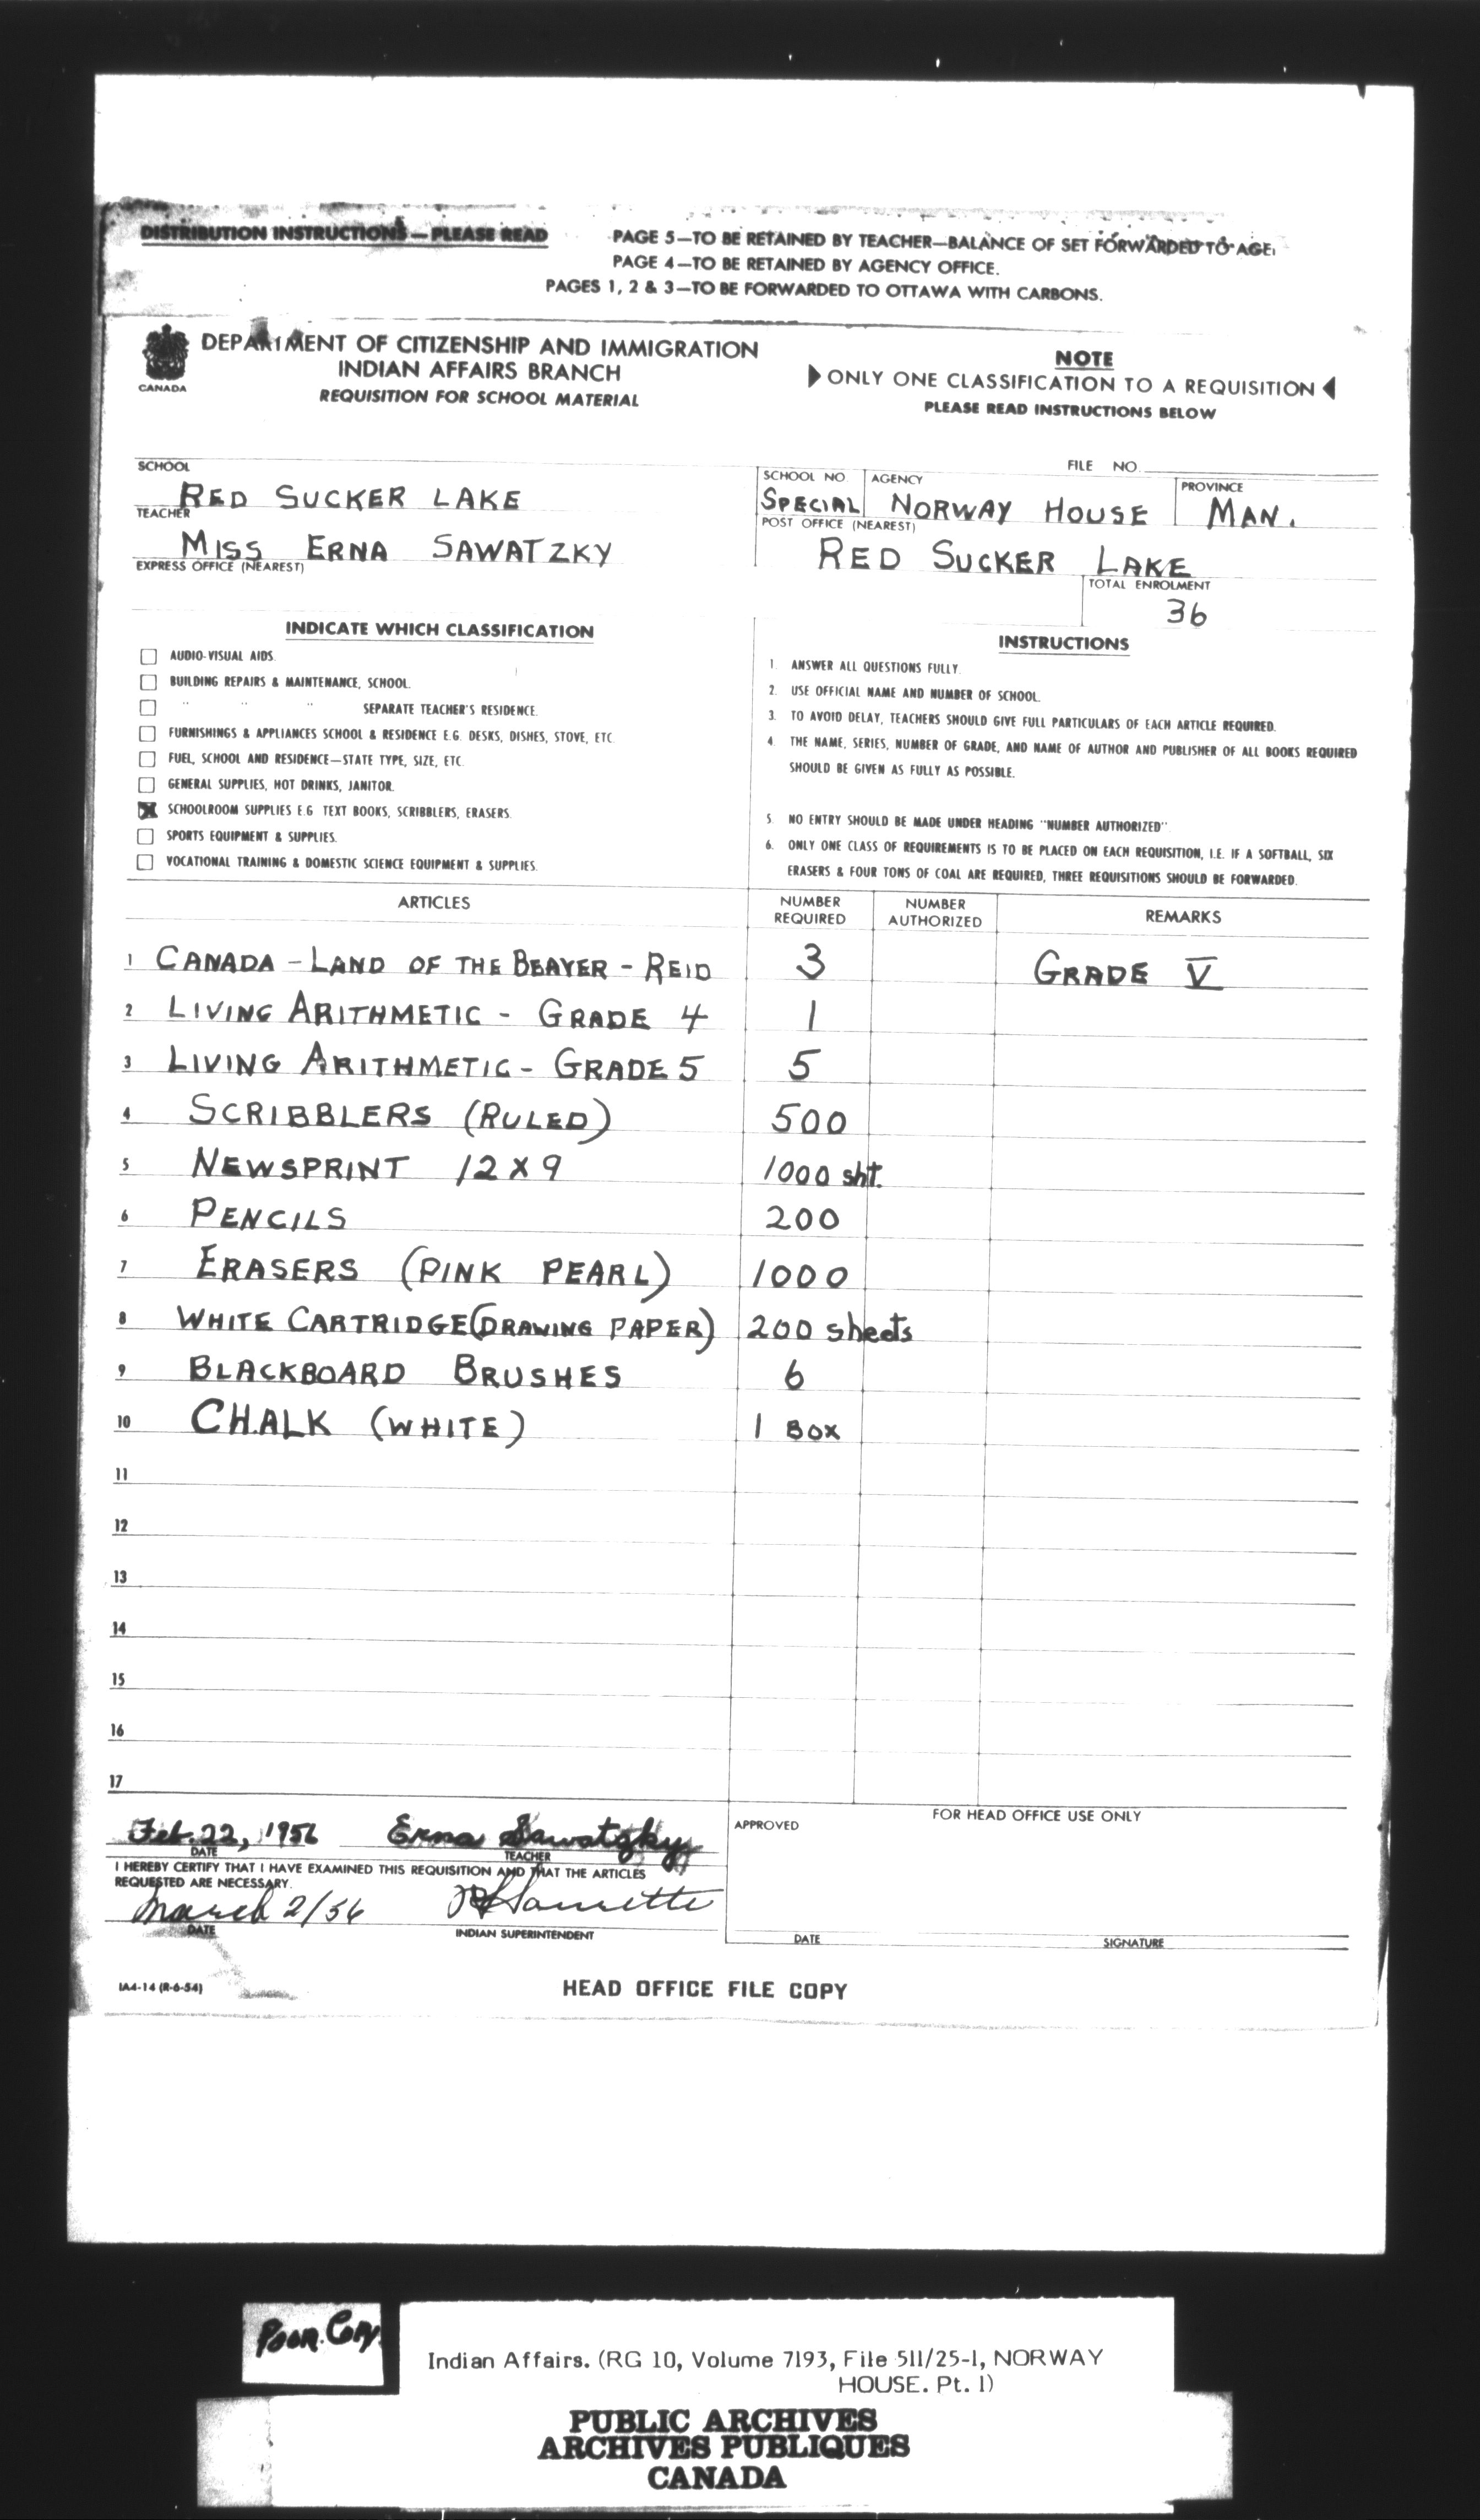 DISTRIBUTION INSTRUCTIONS — PLEASE READ
PAGE 5—TO BE RETAINED BY TEACHER—BALANCE OF SET FORWARDED TO AGE
PAGE 4—TO BE RETAINED BY AGENCY OFFICE.
PAGES 1, 2 & 3—TO BE FORWARDED TO OTTAWA WITH CARBONS.
CANADA
DEPARTMENT OF CITIZENSHIP AND IMMIGRATION
INDIAN AFFAIRS BRANCH
REQUISITION FOR SCHOOL MATERIAL
NOTE
ONLY ONE CLASSIFICATION TO A REQUISITION
PLEASE READ INSTRUCTIONS BELOW
FILE NO.
SCHOOL
RED SUCKER LAKE
SCHOOL NO
SPECIAL
AGENCY
NORWAY HOUSE
PROVINCE
MAN.
TEACHER
MISS ERNA SAWATZKY
POST OFFICE (NEAREST)
RED SUCKER LAKE
EXPRESS OFFICE (NEAREST)
TOTAL ENROLMENT
36
INDICATE WHICH CLASSIFICATION
AUDIO-VISUAL AIDS.
BUILDING REPAIRS & MAINTENANCE, SCHOOL.
" " " SEPARATE TEACHER'S RESIDENCE.
FURNISHINGS & APPLIANCES SCHOOL & RESIDENCE E.G. DESKS, DISHES, STOVE, ETC
FUEL, SCHOOL AND RESIDENCE—STATE TYPE, SIZE, ETC.
GENERAL SUPPLIES, HOT DRINKS, JANITOR.
SCHOOLROOM SUPPLIES E.G TEXT BOOKS, SCRIBBLERS, ERASERS.
SPORTS EQUIPMENT & SUPPLIES.
VOCATIONAL TRAINING & DOMESTIC SCIENCE EQUIPMENT & SUPPLIES.
INSTRUCTIONS
1. ANSWER ALL QUESTIONS FULLY.
2. USE OFFICIAL NAME AND NUMBER OF SCHOOL.
3. TO AVOID DELAY, TEACHERS SHOULD GIVE FULL PARTICULARS OF EACH ARTICLE REQUIRED.
4. THE NAME, SERIES, NUMBER OF GRADE, AND NAME OF AUTHOR AND PUBLISHER OF ALL BOOKS REQUIRED
SHOULD BE GIVEN AS FULLY AS POSSIBLE.
5. NO ENTRY SHOULD BE MADE UNDER HEADING "NUMBER AUTHORIZED".
6. ONLY ONE CLASS OF REQUIREMENTS IS TO BE PLACED ON EACH REQUISITION, I.E. IF A SOFTBALL, SIX
ERASERS & FOUR TONS OF COAL ARE REQUIRED, THREE REQUISITIONS SHOULD BE FORWARDED.
ARTICLES
NUMBER REQUIRED
NUMBER AUTHORIZED
REMARKS
1 CANADA - LAND OF THE BEAVER - REID 3 GRADE V
2 LIVING ARITHMETIC - GRADE 4 1
3 LIVING ARITHMETIC - GRADE 5 5
4 SCRIBBLERS (RULED) 500
5 NEWSPRINT 12 X 9 1000 sht.
6 PENCILS 200
7 ERASERS (PINK PEARL) 1000
8 WHITE CARTRIDGE (DRAWING PAPER) 200 sheets
9 BLACKBOARD BRUSHES 6
10 CHALK (WHITE) 1 BOX
11
12
13
14
15
16
17
Feb. 22, 1956 Erna Sawatzky
DATE TEACHER
I HEREBY CERTIFY THAT I HAVE EXAMINED THIS REQUISITION AND THAT THE ARTICLES
REQUESTED ARE NECESSARY.
March 2/56
DATE INDIAN SUPERINTENDENT
APPROVED
FOR HEAD OFFICE USE ONLY
DATE SIGNATURE
IA4-14 (R-6-54)
HEAD OFFICE FILE COPY
POOR COPY
Indian Affairs. (RG 10, Volume 7193, File 511/25-1, NORWAY
HOUSE. Pt. 1)
PUBLIC ARCHIVES
ARCHIVES PUBLIQUES
CANADA